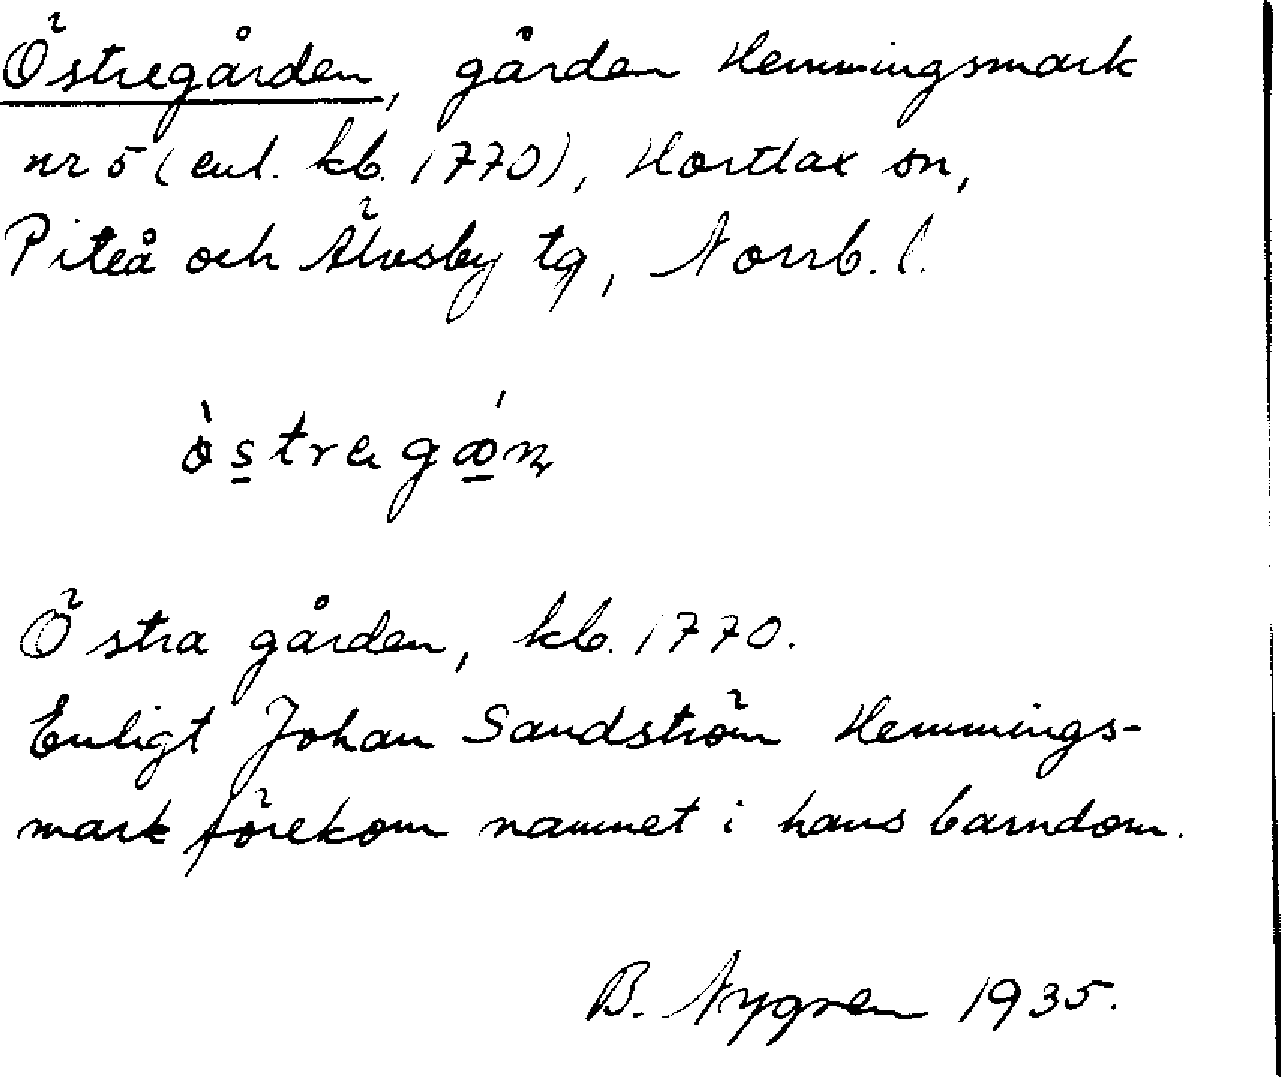 Östregården, gården Hemmingsmark
nr 5 (enl. kb. 1770), Hortlax sn,
Piteå och Älvsby tg, Norrb. l.
Östra gården, kb. 1770.
Enligt Johan Sandström Hemmings-
mark förekom namnet i hans barndom.
B. Nygren 1935.